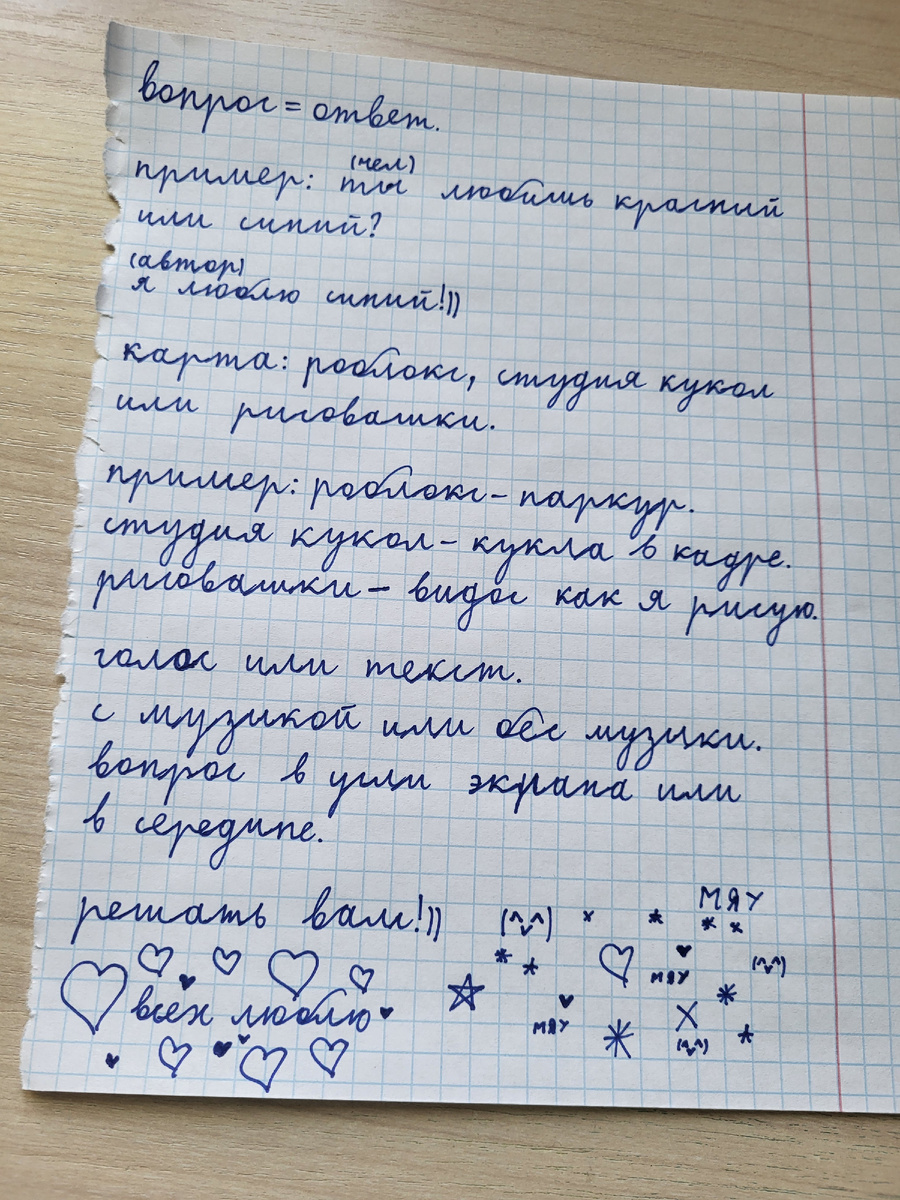 вопрос = ответ.
(чел)
пример: ты любишь красний
или синий?
(автор)
я люблю синий!))
карта: роблокс, студия кукол
или рисовашки.
пример: роблокс - паркур.
студия кукол - кукла в кадре.
рисовашки - видос как я рисую.
голос или текст.
с музикой или бес музики.
вопрос в угли экрана или
в середине.
решать вам!))
(^ᵥ^)
МЯУ
МЯУ
(^ᵥ^)
всех люблю
МЯУ
(^ᵥ^)